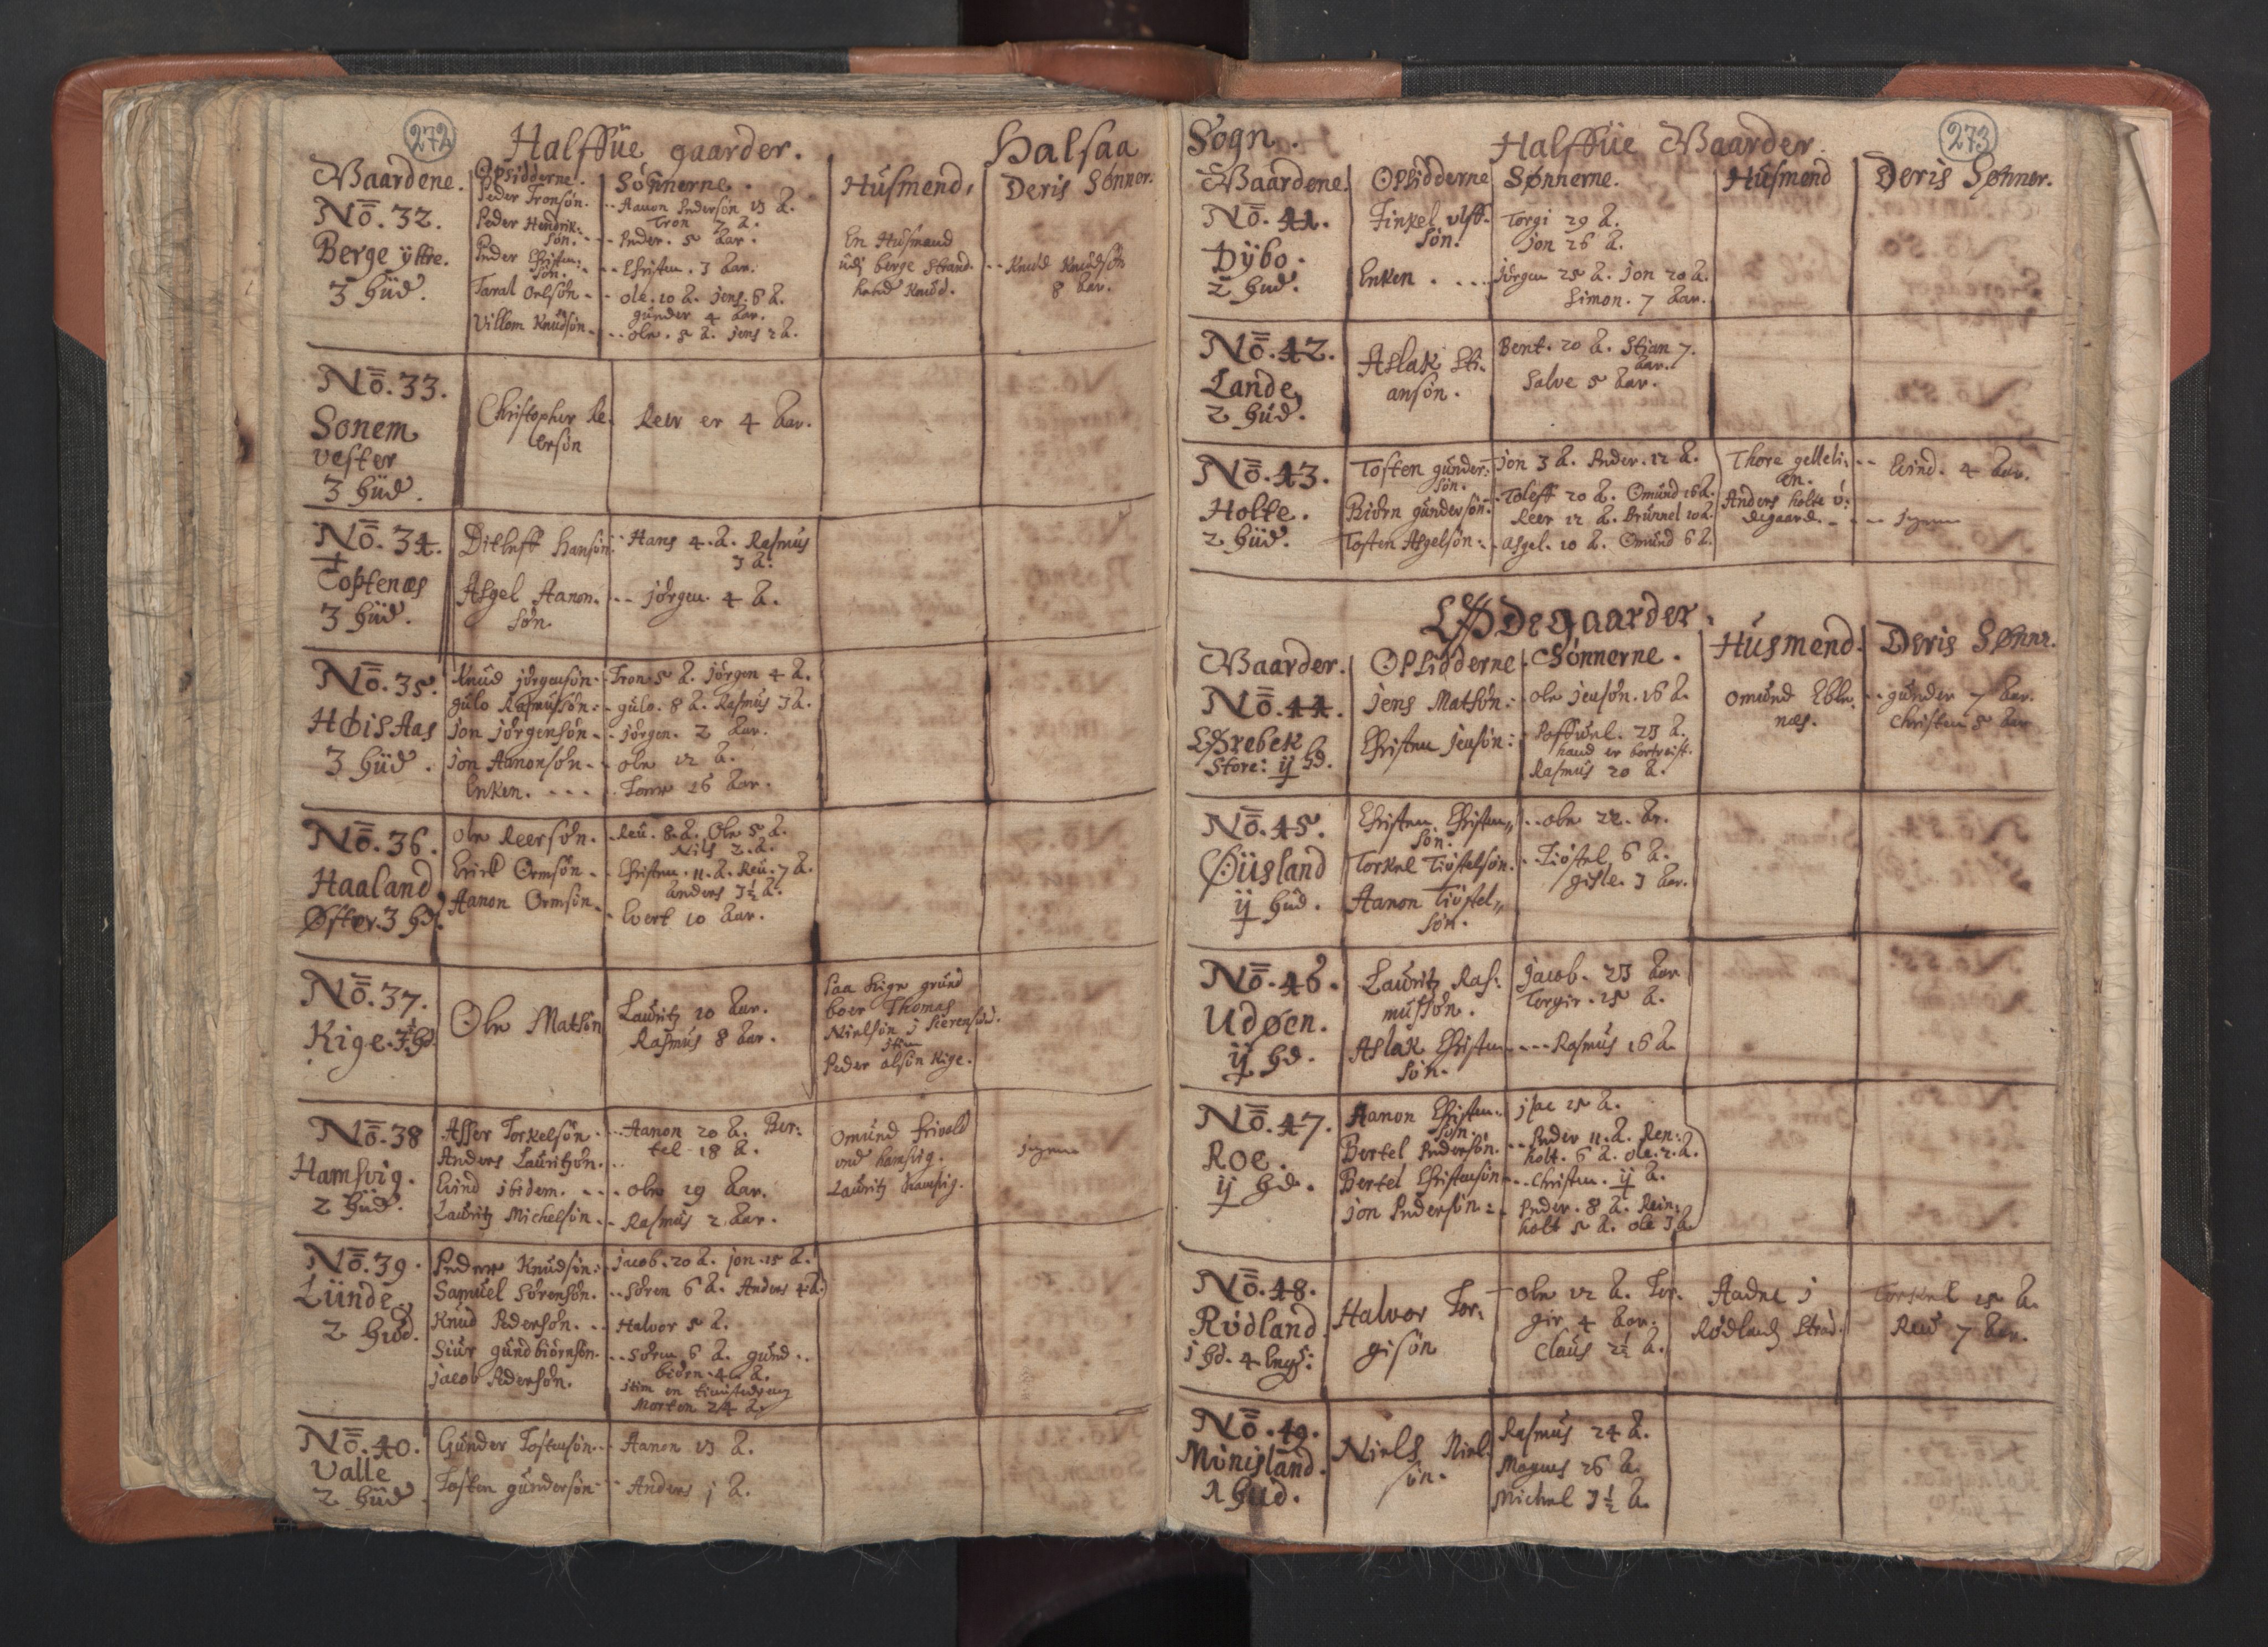 272
Halffüe gaarder. Halsaa
Gaardene. Opsidderne. Sønnerne. Husmend, Deris Sønner.
No. 32.
Berge ÿttre.
3 hüd.
Peder Tronsøn.
Peder Hendrik:
søn.
Peder Christen:
søn.
Taral Oelsøn
Villom Knudsøn
Aanon Pedersøn 13 A.
Tron 7 A.
Peder. 5 Aar.
Christen. 3 Aar.
Ole. 10 A. jens. 6 A.
gunder 4 Aar.
Ole. 5 A. jens 2 A.
En Husmand
udj berge Strand
Knud Knudsøn
8 Aar.
No. 33.
Sonem
vester
3 hüd.
Christopher Re-
ersøn
Reer er 4 Aar.
No. 34.
Toftenæs
3 hüd.
Ditleff Hansøn
Asgel Aanon.
søn
Hans 4. A. Rasmus
3 A.
jørgen. 4 A.
No. 35.
Høis Aas
3 hüd.
Knud jørgensøn
gulo Rasmussøn
jon jørgensøn
jon Aanonsøn
Enken.
Tron. 5 A. jørgen 4 A.
gulo. 8 A. Rasmus 3 A.
jørgen. 2 Aar.
ole 12 A.
Tore 16 Aar.
No. 36.
Haaland
Øster. 3 hd.
Ole Reersøn.
Erick Ormsøn
Aanon Ormsøn
Reer. 8. A. Ole 5 A.
Nils 2. A.
Christen. 11. A. Reer. 7 A.
anders 3½ A.
Evert 10 Aar.
No. 37.
Kige. 3½ hd.
Ole Matsøn
Lauritz 10 Aar.
Rasmus 8 Aar.
Paa Kige grund
boer Thomas
Nielsøn
item
Peder olsøn Kige.
No. 38
Hamsvig.
2 hüd.
Asser Torkelsøn
Anders Lauritsøn.
Evind ibidem.
Lauritz Michelsøn
Aanon 20 A. Ber:
tel 18 A.
ole 19 Aar.
Rasmus 2 Aar.
Omund frivold
ved hamsvig.
Lauritz hamsvig.
jngen
No. 39.
Lünde.
2 hud.
Peder Knudsøn:
Samuel Sørensøn.
Knud Pedersøn.
Siur gundbiørnsøn.
jacob Pedersøn.
jacob. 20 A. jon. 15 A.
Søren 6 A. Anders 4 A.
Halvor 5 A.
Søren 6 A. gund..
biøen. 4 A.
item en tienistedreng
Morten 24 A.
No. 40.
Valle
2 hüd.
Gunder Tostensøn
Tosten gundersøn
Aanon 13 A.
Anders j A.
273
Sogn. Halffüe Gaarder.
Gaardene. Opsidderne Sønnerne. Husmend Deris Sønner.
No. 41.
Dÿbo.
2 hud.
Finkel ulff-
søn.
Enken
Torgi 29 A.
jon 26 A.
jørgen 25 A. jon 20 A.
Simon. 7 Aar.
No. 42.
Lande,
2 hüd.
Aslak Sti-
ansøn.
Bent. 20 A. Stian 7.
Aar.
Salve 5 Aar.
No. 43.
Holte.
2 hüd.
Tosten gunder-
søn.
Biøn gundersøn
Tosten Asgelsøn
jon 3 A. Peder. 12 A.
Toleff 20 A. Omund 16 A.
Reer 12 A. Brunnel 10 A.
asgel. 10 A. Omund 6 A.
Thore gelleli-
en.
Anders holte ø:
degaard
Evind. 4 Aar.
jngen
Ødegaarder.
Gaarder. Opsidderne. Sønnerne. Husmend. Deris Sønne.
No. 44.
Ørebek
Store: ij hd.
jens Matsøn:
Christen jensøn:
ole jensøn. 16 A.
Poffuel. 23 A.
hand er bortreist.
Rasmus 20 A.
Omund Eble-
næs.
gunder 7 Aar.
Christen 5 Aar
No. 45.
Øüsland
ij hud.
Christen Christen
søn.
Torkel Tiøstelsøn.
Aanon Tiøstel
søn.
ole 22. Ar.
Tiøstel 6 A.
gisle. 3 Aar.
No. 46.
Udøen.
ij hd.
Lauritz Ras:
mussøn.
Aslak Christen
søn.
jacob. 23 Aar
Torgir. 15 A.
Rasmus 16 A.
No. 47.
Roe.
ij hd.
Aanon Christen:
søn.
Bertel Pedersøn.
Bertel Christensøn
jon Pedersøn
jsac 15 A.
Peder 11. A. Ren:
holt. 6 A. ole. 2. A.
Christen. ij A.
Peder. 8 A. Rein:
holt 5 A. ole 3 A.
No. 48.
Rødland
j hd. 4 eng:
Halvor Tor.
gisøn
ole 12 A. Tor.
gir 4 Aar.
Claus 2½ A.
Aadne j
Rødlands Strad.
Torkel 15 A.
Reer 7 Aar.
No. 49.
Monisland.
1 hud.
Niels Niel
søn.
Rasmus 24 A.
Magnus 26 A.
Michel 3½ A.